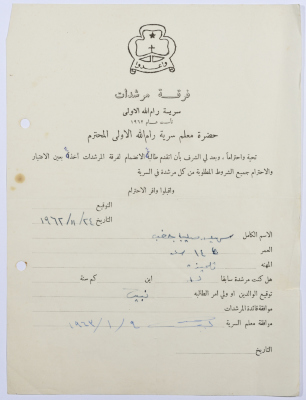 وأعدوا
فرقة مرشدات
سرية رام الله الاولى
تأسست عام ١٩٦٢
حضرة معلم سرية رام الله الاولى المحترم
تحية واحتراماً ، وبعد لي الشرف بأن اتقدم طالبة الانضمام لفرقة المرشدات آخذة بعين الاعتبار
والاحترام جميع الشروط المطلوبة من كل مرشدة في السرية
واقبلوا وافر الاحترام
التوقيع
التاريخ ٢٤ / ١١ / ١٩٦٢
الاسم الكامل
العمر ١٤ سنة
المهنه تلميذة
هل كنت مرشدة سابقا لا اين كم سنة
توقيع الوالدين او ولي امر الطالبه
موافقة قائدة المرشدات
موافقة معلم السرية ٩ / ١ /
التاريخ